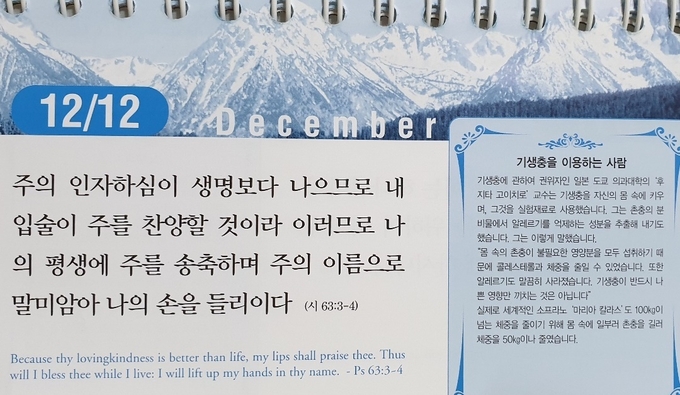 12/12
December
주의 인자하심이 생명보다 나으므로 내
입술이 주를 찬양할 것이라 이러므로 나
의 평생에 주를 송축하며 주의 이름으로
말미암아 나의 손을 들리이다 (시 63:3-4)
Because thy lovingkindness is better than life, my lips shall praise thee. Thus
will I bless thee while I live: I will lift up my hands in thy name. - Ps 63:3-4
기생충을 이용하는 사람
기생충에 관하여 권위자인 일본 도쿄 의과대학의 '후
지타 고이치로' 교수는 기생충을 자신의 몸 속에 키우
며, 그것을 실험재료로 사용했습니다. 그는 촌충의 분
비물에서 알레르기를 억제하는 성분을 추출해 내기도
했습니다. 그는 이렇게 말했습니다.
"몸 속의 촌충이 불필요한 영양분을 모두 섭취하기 때
문에 콜레스테롤과 체중을 줄일 수 있었습니다. 또한
알레르기도 말끔히 사라졌습니다. 기생충이 반드시 나
쁜 영향만 끼치는 것은 아닙니다"
실제로 세계적인 소프라노 '마리아 칼라스'도 100kg이
넘는 체중을 줄이기 위해 몸 속에 일부러 촌충을 길러
체중을 50kg이나 줄였습니다.